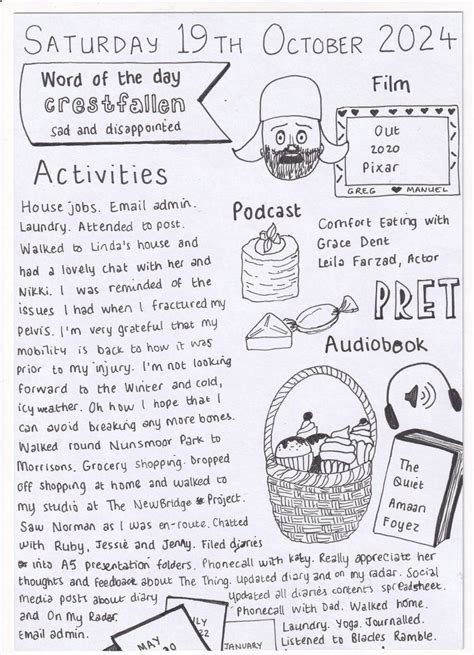 SATURDAY 19TH OCTOBER 2024
Word of the day
crestfallen
sad and disappointed
Film
Out
2020
Pixar
GREG ♥ MANUEL
Activities
House jobs. Email admin.
Laundry. Attended to post.
Walked to Linda's house and
had a lovely chat with her and
Nikki. I was reminded of the
issues I had when I fractured my
pelvis. I'm very grateful that my
mobility is back to how it was
prior to my injury. I'm not looking
forward to the Winter and cold,
icy weather. Oh how I hope that I
can avoid breaking any more bones.
Walked round Nunsmoor Park to
Morrisons. Grocery shopping. Dropped
off shopping at home and walked to
my studio at The NewBridge Project.
Saw Norman as I was en-route. Chatted
with Ruby, Jessie and Jenny. Filed diaries
into A5 presentation folders. Phonecall with Katy. Really appreciate her
thoughts and feedback about The Thing. Updated diary and on my radar. Social
media posts about diary
and On My Radar.
Email admin.
Updated all diaries contents spreadsheet.
Phonecall with Dad. Walked home.
Laundry. Yoga. Journalled.
Listened to Blades Ramble.
Podcast
Comfort Eating with
Grace Dent
Leila Farzad, Actor
PRET
Audiobook
The
Quiet
Amaan
Foyez
MAY
JULY
22
JANUARY